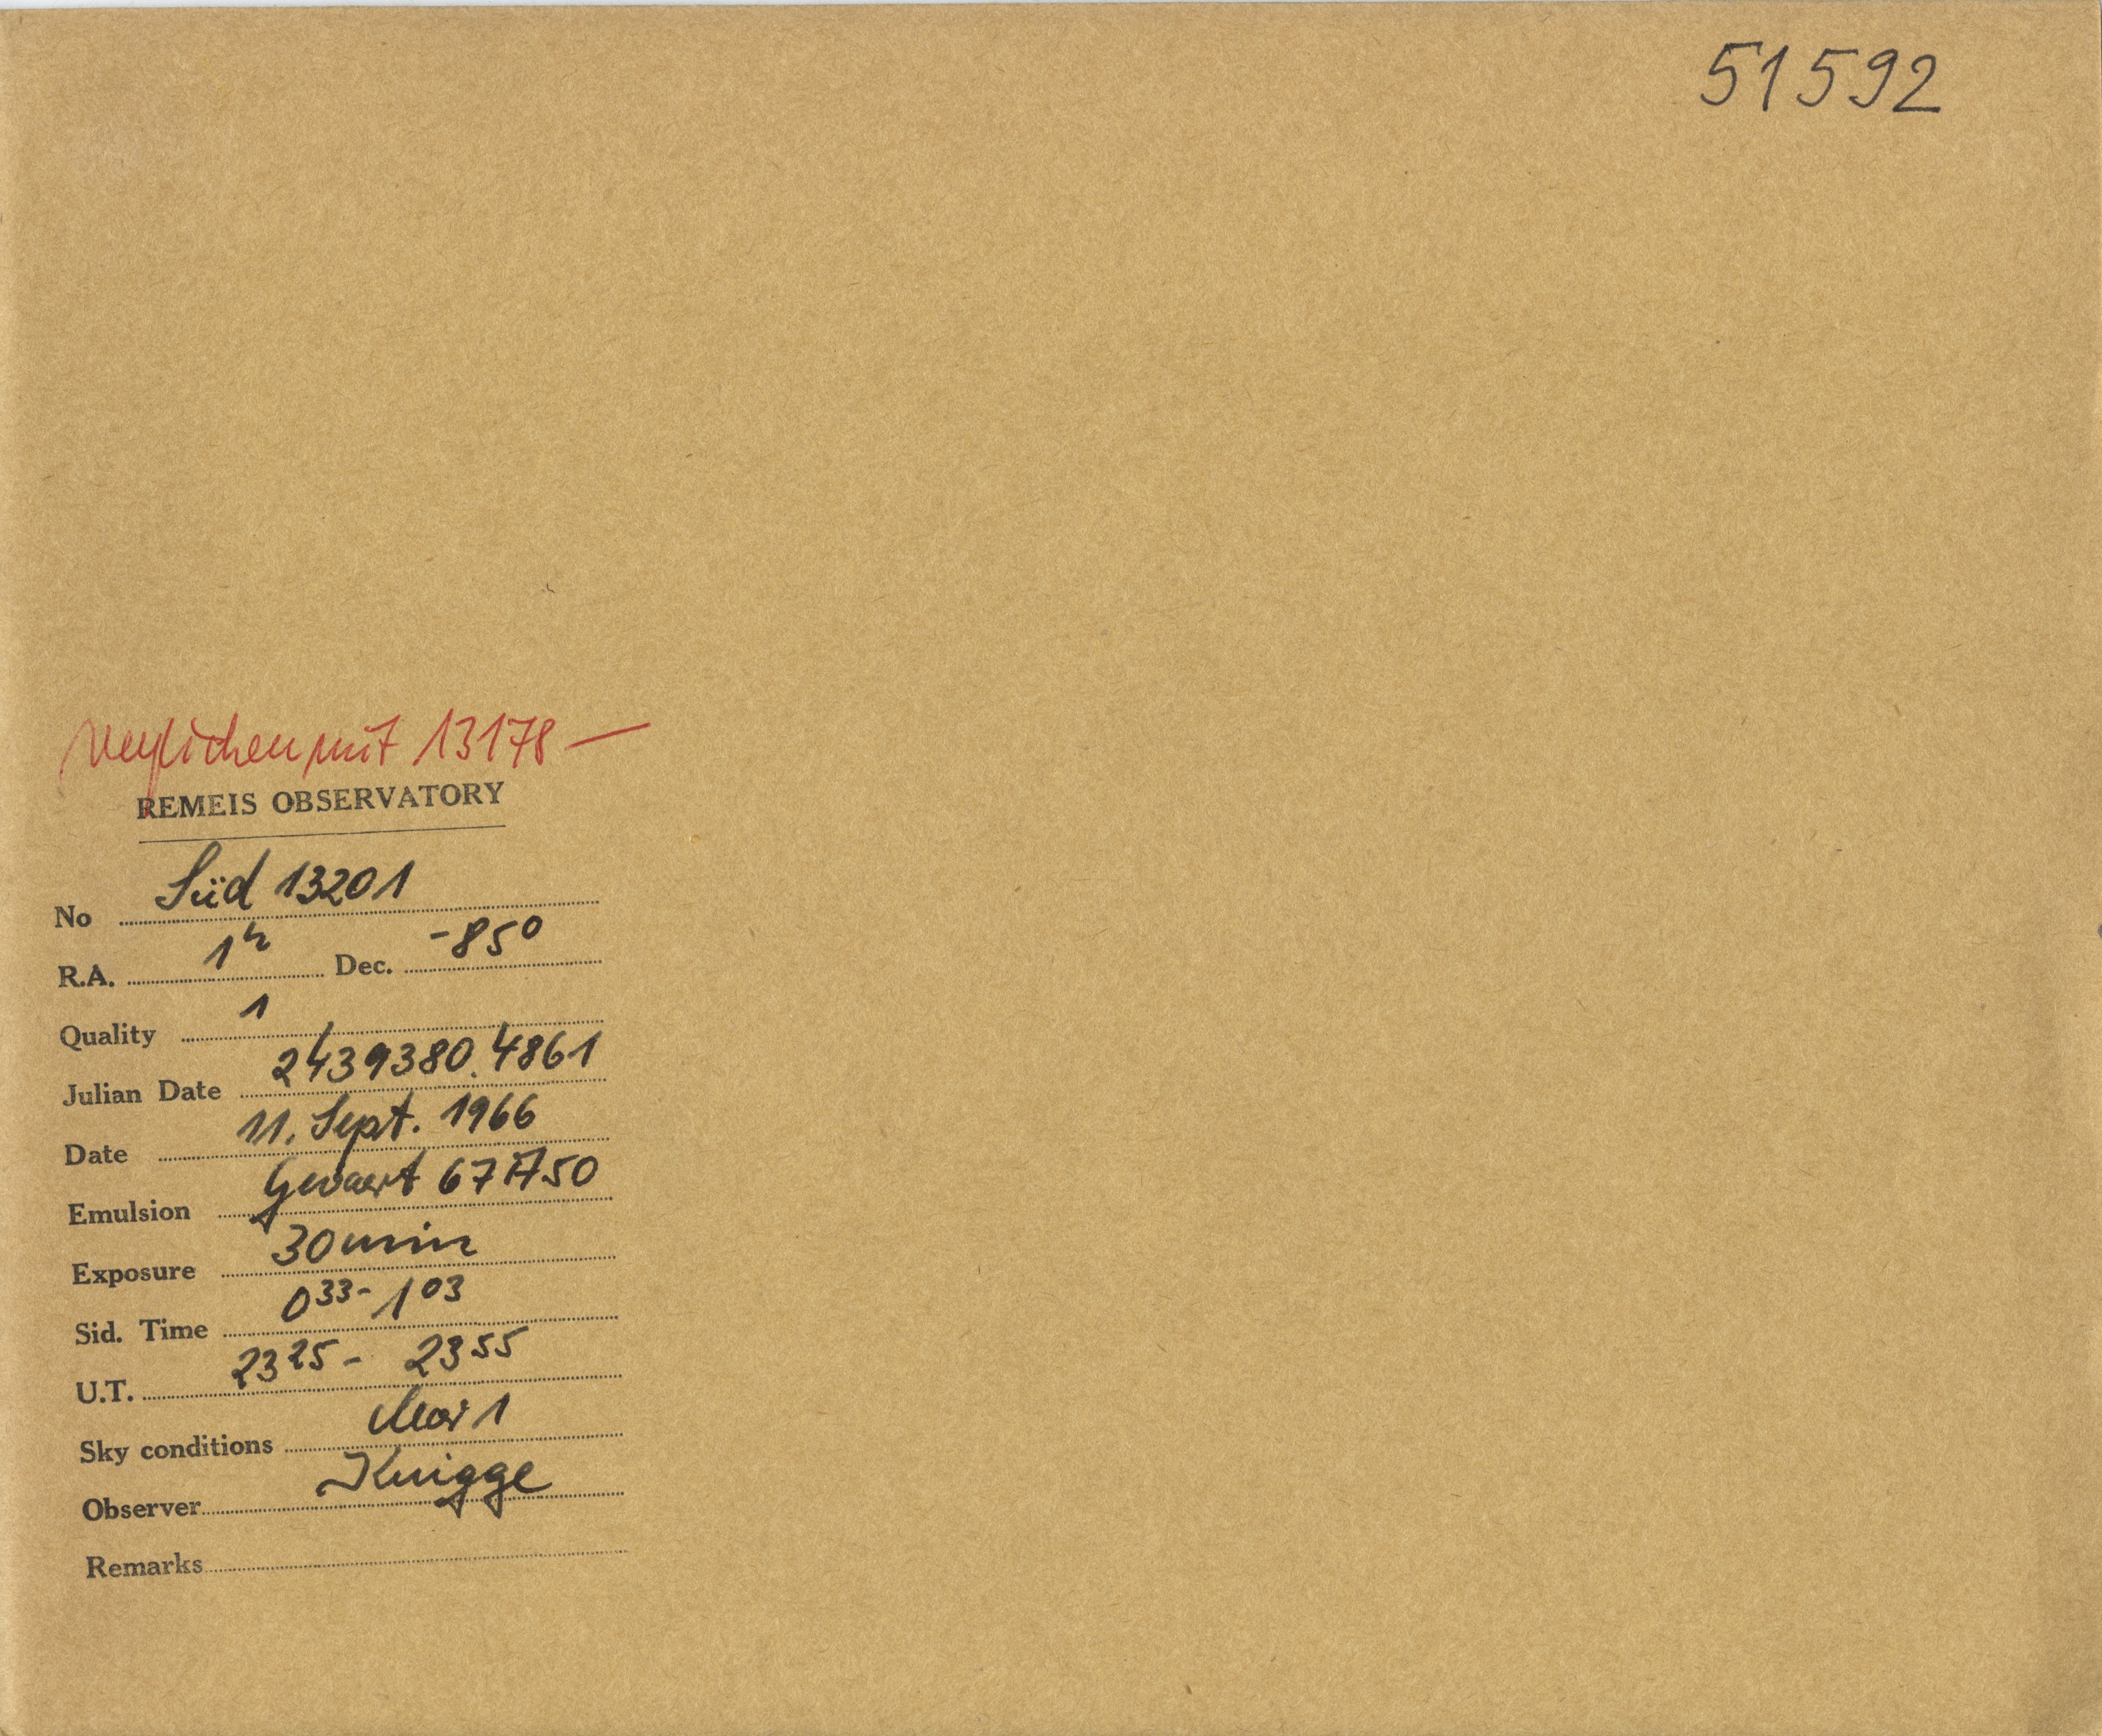 51592
verglichen mit 13178 —
REMEIS OBSERVATORY
No Süd 13201
R.A. 1h Dec. -85°
Quality 1
Julian Date 2439380.4861
Date 11. Sept. 1966
Emulsion Gevaert 67A50
Exposure 30min
Sid. Time 0 33 - 1 03
U.T. 23 25 - 23 55
Sky conditions klar 1
Observer Knigge
Remarks